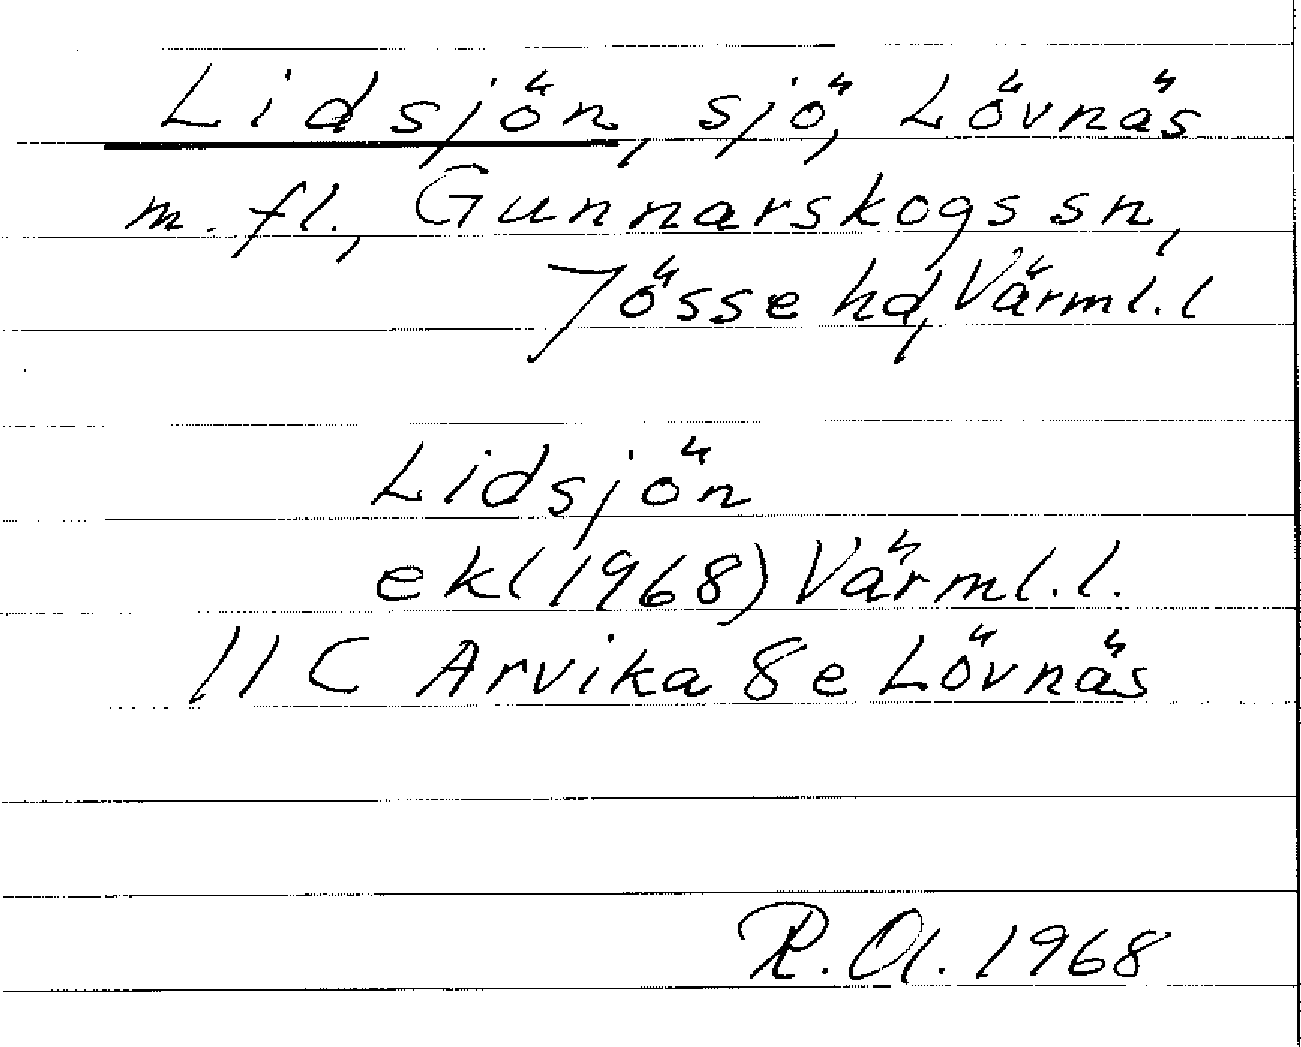 Lidsjön, sjö, Lövnäs
m. fl., Gunnarskogs sn,
Jösse hd, Värml. l
Lidsjön
ekl (1968) Värml. l.
11 C Arvika 8e Lövnäs
R. Ol. 1968